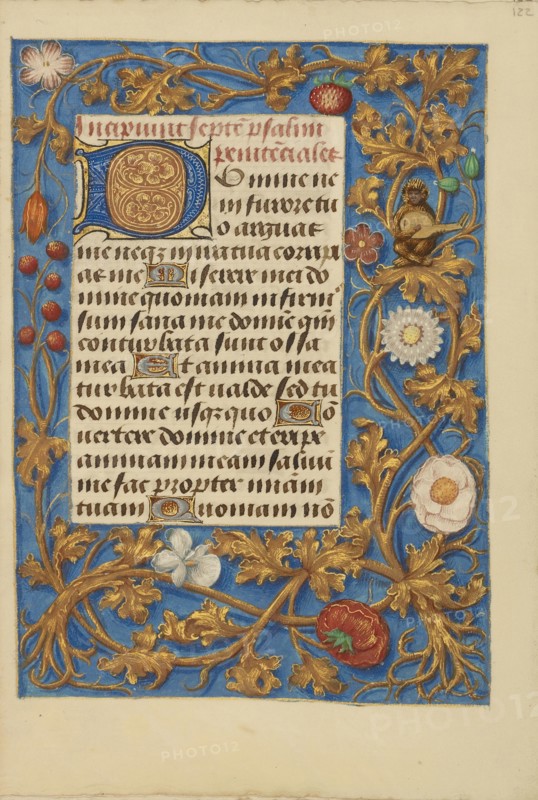 122
Incipiunt septē psalmi
penitēciales
Domine ne
in furore tu
o arguas
me neqz in ira tua corripi
as me Miserere mei do
mine quoniam infirm'
sum sana me domīe qm̄
conturbata sunt ossa
mea Et anima mea
turbata est ualde sed tu
domine usqzquo Cō
uertere domine et eripe
animam meam saluū
me fac propter mīam
tuam Quoniam nō
PHOTO12
PHOTO12
PHOTO12